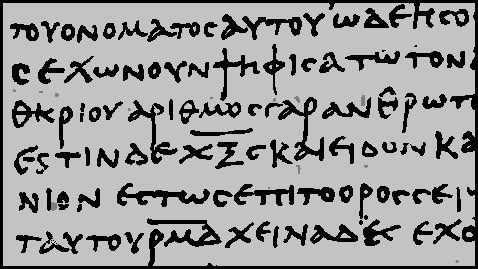 τουονοματοϲαυτουωδεηϲο
ϲεχωνουνψηφιϲατωτονα
θηριουαριθμοϲγαρανθρωπ
εϲτινδεχξϛκαιειδονκα
νιονεϲτωϲεπιτοοροϲϲει
ταυτουρμδχειλιαδεϲεχο